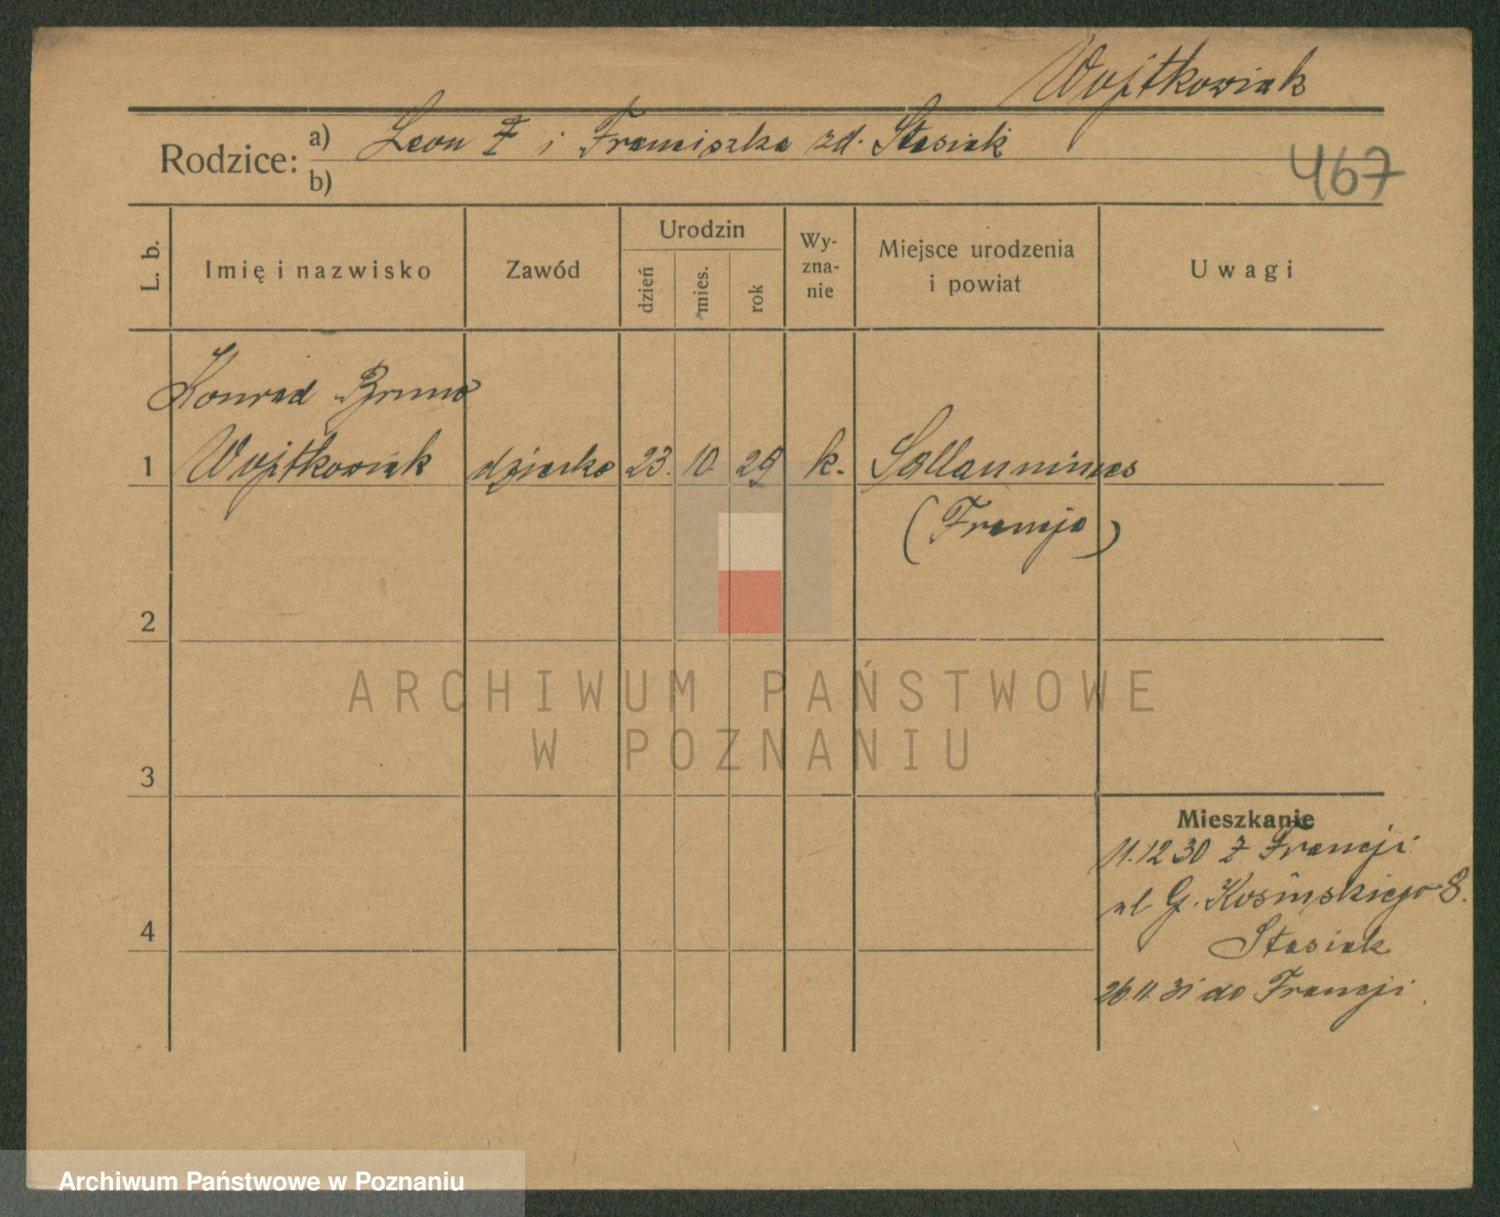 Wojtkowiak
Rodzice: a) Leon F i Franciszka zd. Stasiak
b)
467
L. b.
Imię i nazwisko
Zawód
Urodzin
dzień
mies.
rok
Wy-
zna-
nie
Miejsce urodzenia
i powiat
Uwagi
Konrad Bruno
1 Wojtkowiak dziecko 23. 10. 29 k. Sallaumines
(Francja)
2
3
4
Mieszkanie
11.12 30 z Francji
ul G. Kosińskiego 8.
Stasiak
26.11.31 do Francji.
ARCHIWUM PAŃSTWOWE
W POZNANIU
Archiwum Państwowe w Poznaniu